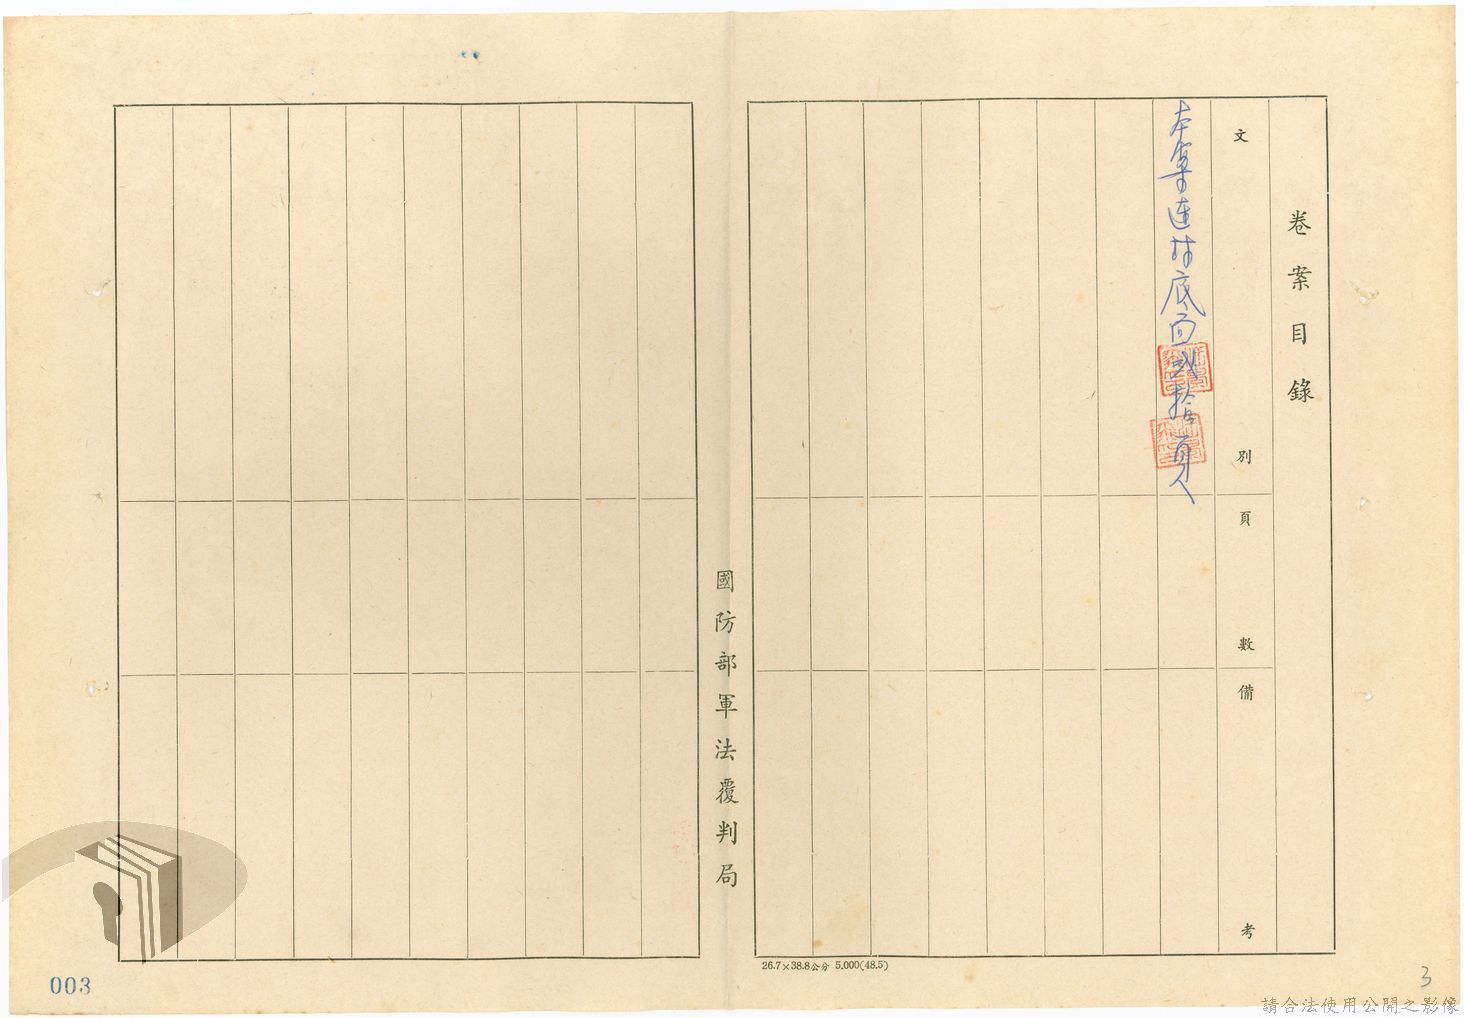 卷案目錄
文別
頁數
備考
本案連封底面貳拾頁
國防部軍法覆判局
26.7×38.8公分 5,000(48.5)
003
3
請合法使用公開之影像